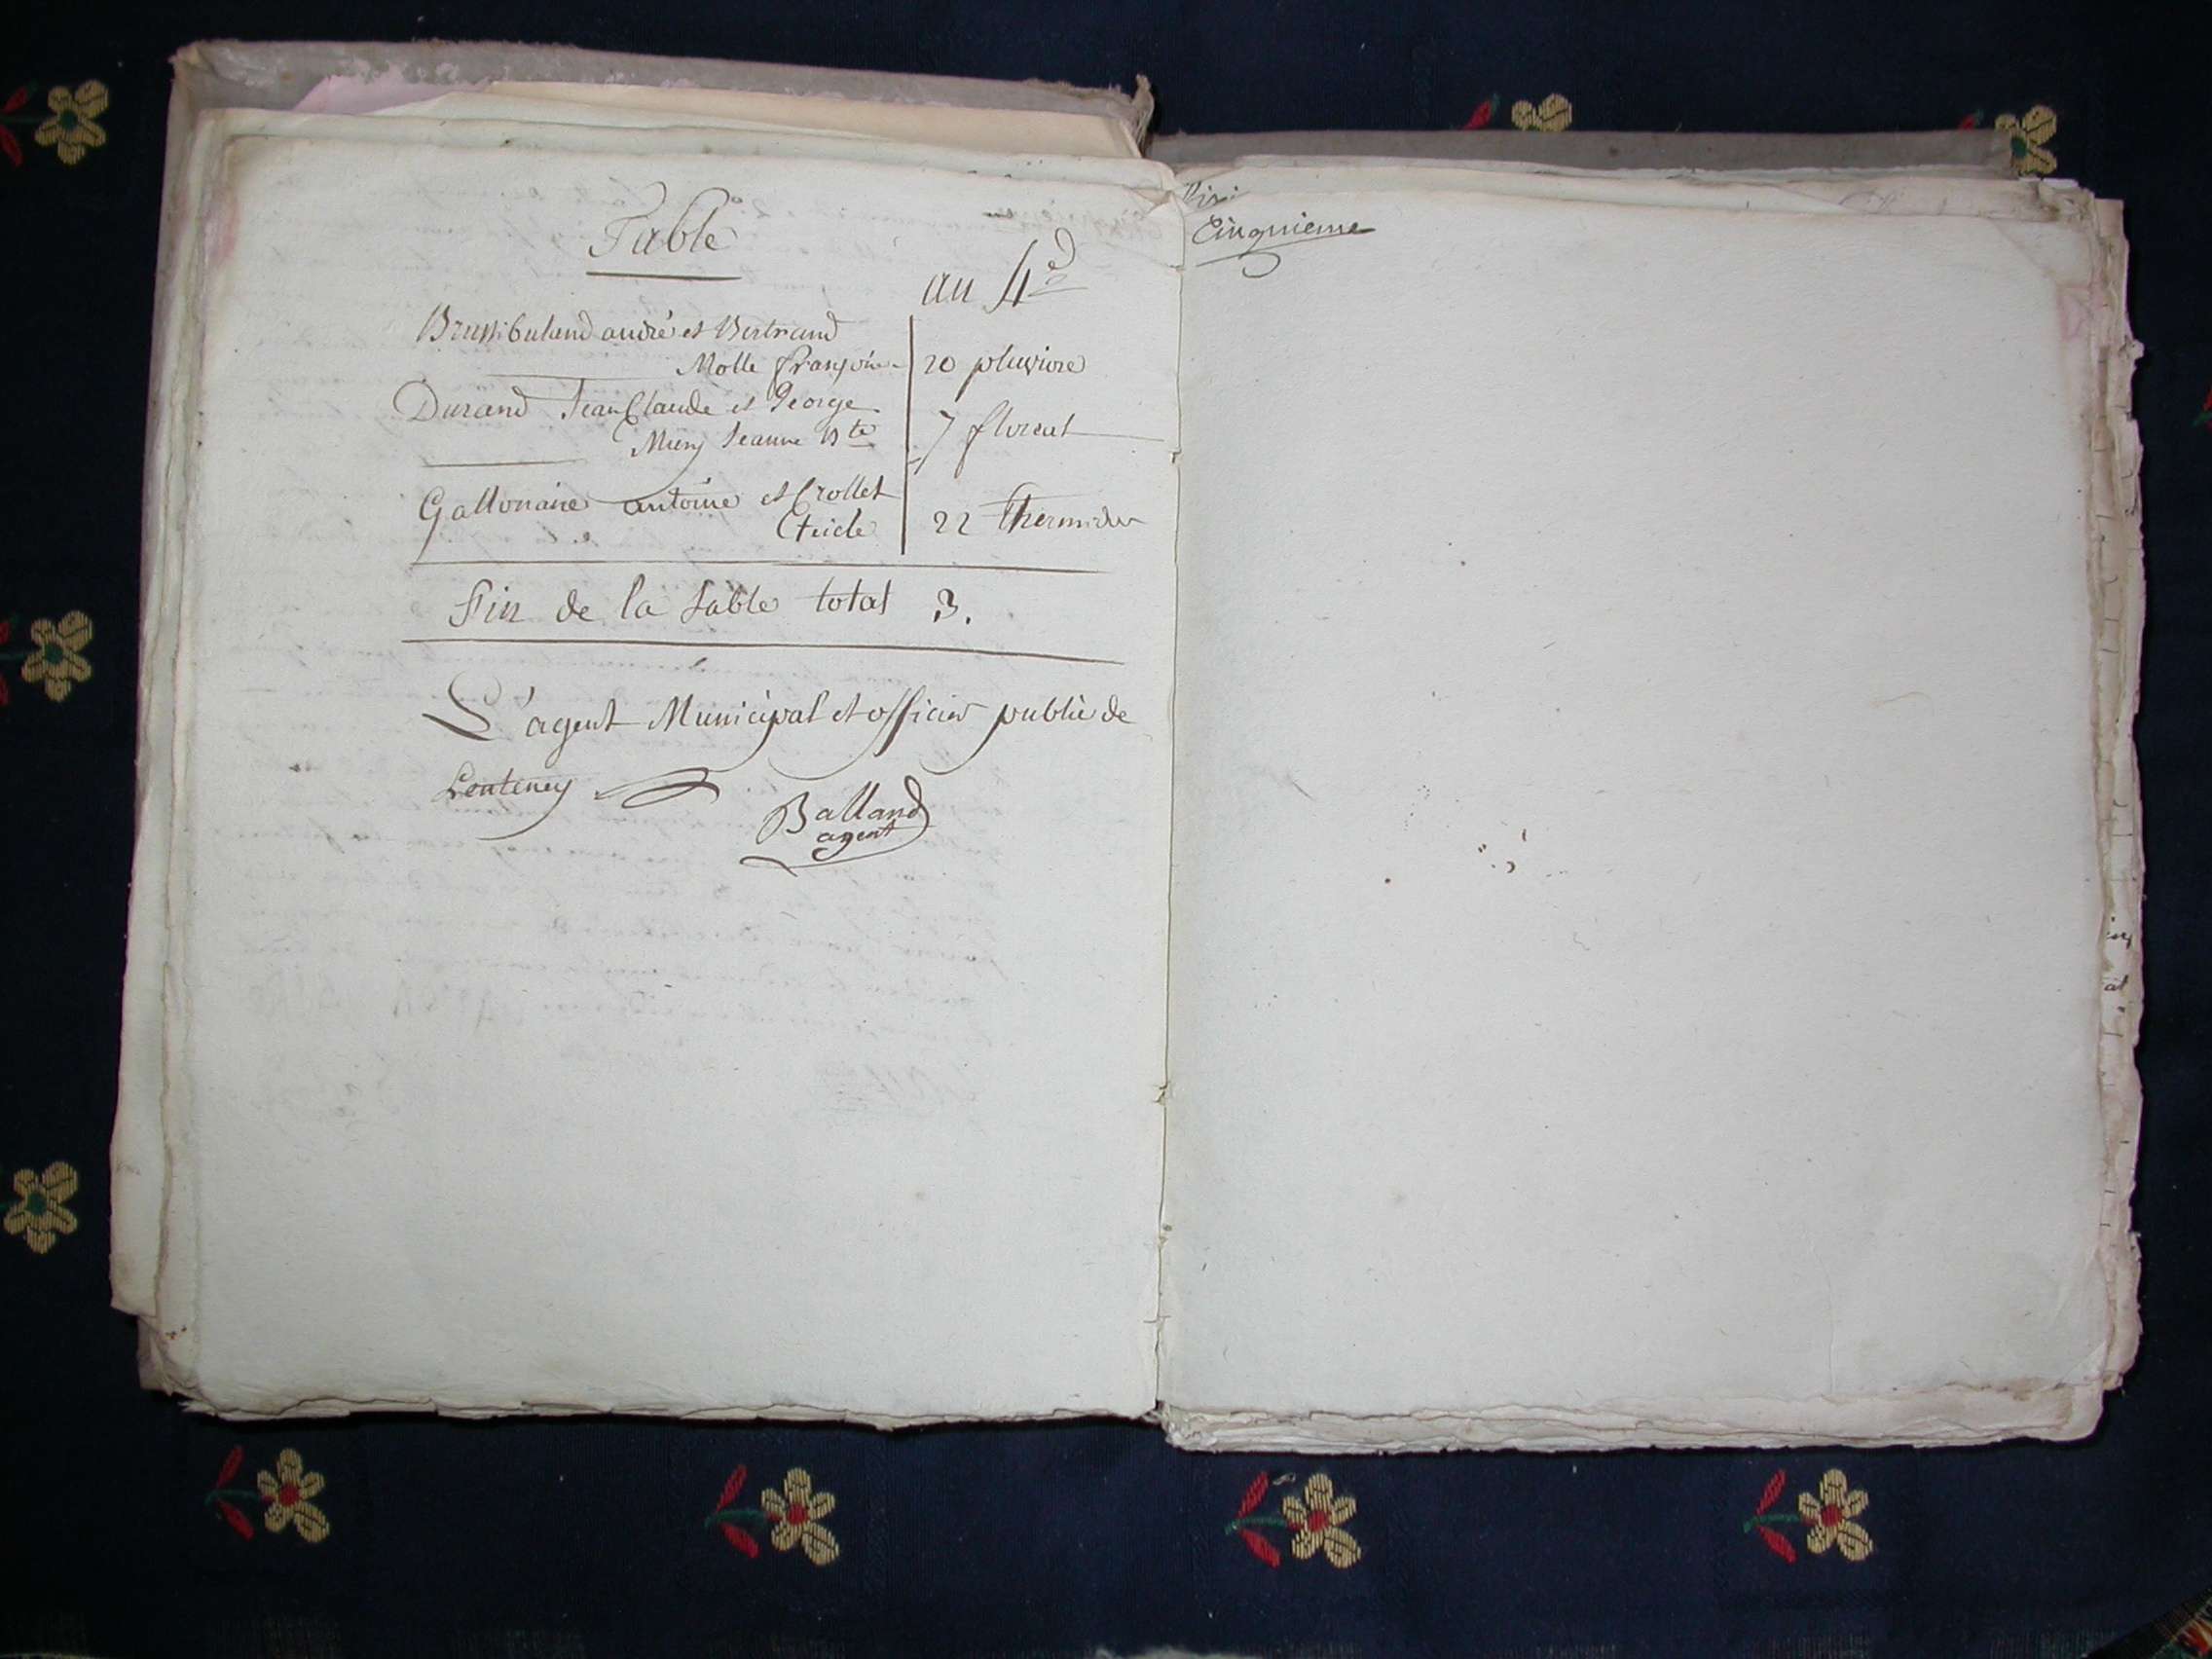 Table
au 4e
andré et Bertrand
Molle françoise 20 pluviose
Durand Jean Claude et George
Mury Jeanne Bte 7 floreal
Gallonaire antoine et Crollet
22 thermidor
fin de la table total 3.
L'agent Municipal et officier public de
Lenteney
Balland
agent
Cinquieme